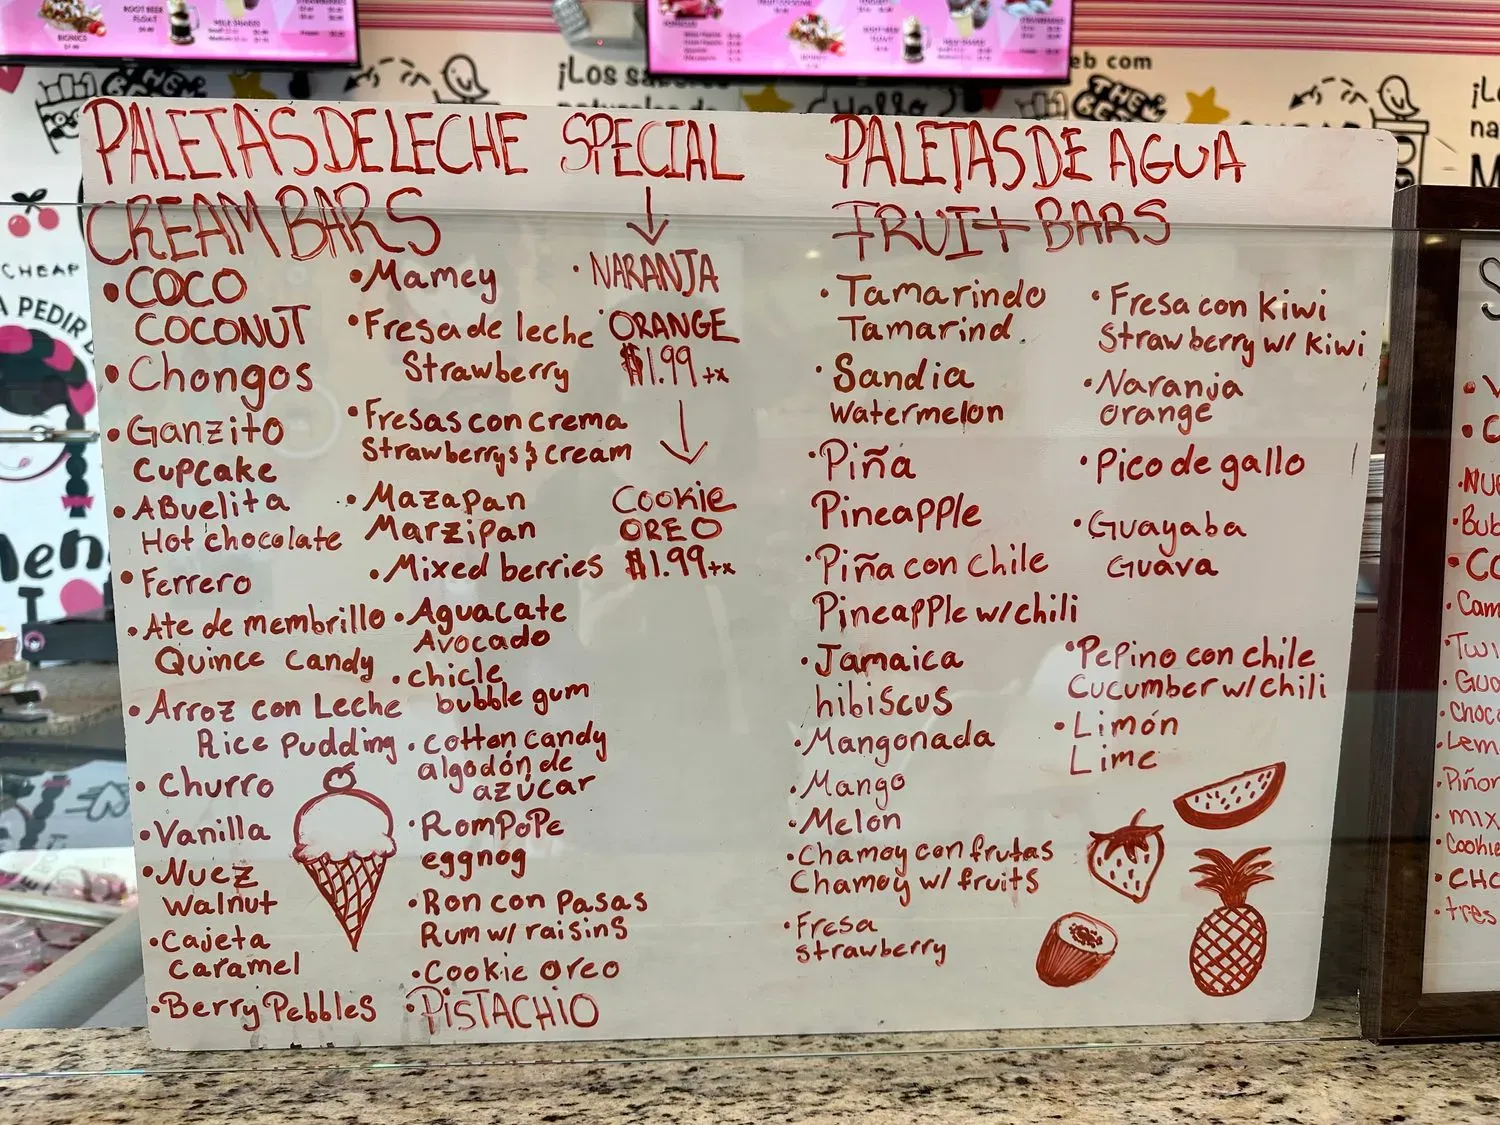 PALETAS DE LECHE SPECIAL
CREAM BARS
• COCO
COCONUT
• Chongos
• Ganzito
Cupcake
• Abuelita
Hot chocolate
• Ferrero
• Ate de membrillo
Quince candy
• Arroz con Leche
Rice pudding
• Churro
• Vanilla
• Nuez
Walnut
• Cajeta
Caramel
• Berry Pebbles
• Mamey
• Fresa de leche
Strawberry
• Fresas con crema
Strawberrys & cream
• Mazapan
Marzipan
• Mixed berries
• Aguacate
Avocado
• chicle
bubble gum
• cotton candy
algodón de
azúcar
• Rompope
eggnog
• Ron con pasas
Rum w/ raisins
• Cookie oreo
• PISTACHIO
• NARANJA
ORANGE
$1.99+x
Cookie
OREO
$1.99+x
PALETAS DE AGUA
FRUIT BARS
• Tamarindo
Tamarind
• Sandia
Watermelon
• Piña
Pineapple
• Piña con chile
Pineapple w/chili
• Jamaica
hibiscus
• Mangonada
• Mango
• Melon
• Chamoy con frutas
Chamoy w/ fruits
• Fresa
Strawberry
• Fresa con kiwi
Strawberry w/ kiwi
• Naranja
orange
• Pico de gallo
• Guayaba
Guava
• Pepino con chile
Cucumber w/chili
• Limón
Lime
ROOT BEER
FLOAT
BIONICS
MILK SHAKES
¡Los
eb com
Hello
CHEAP
A PEDIR